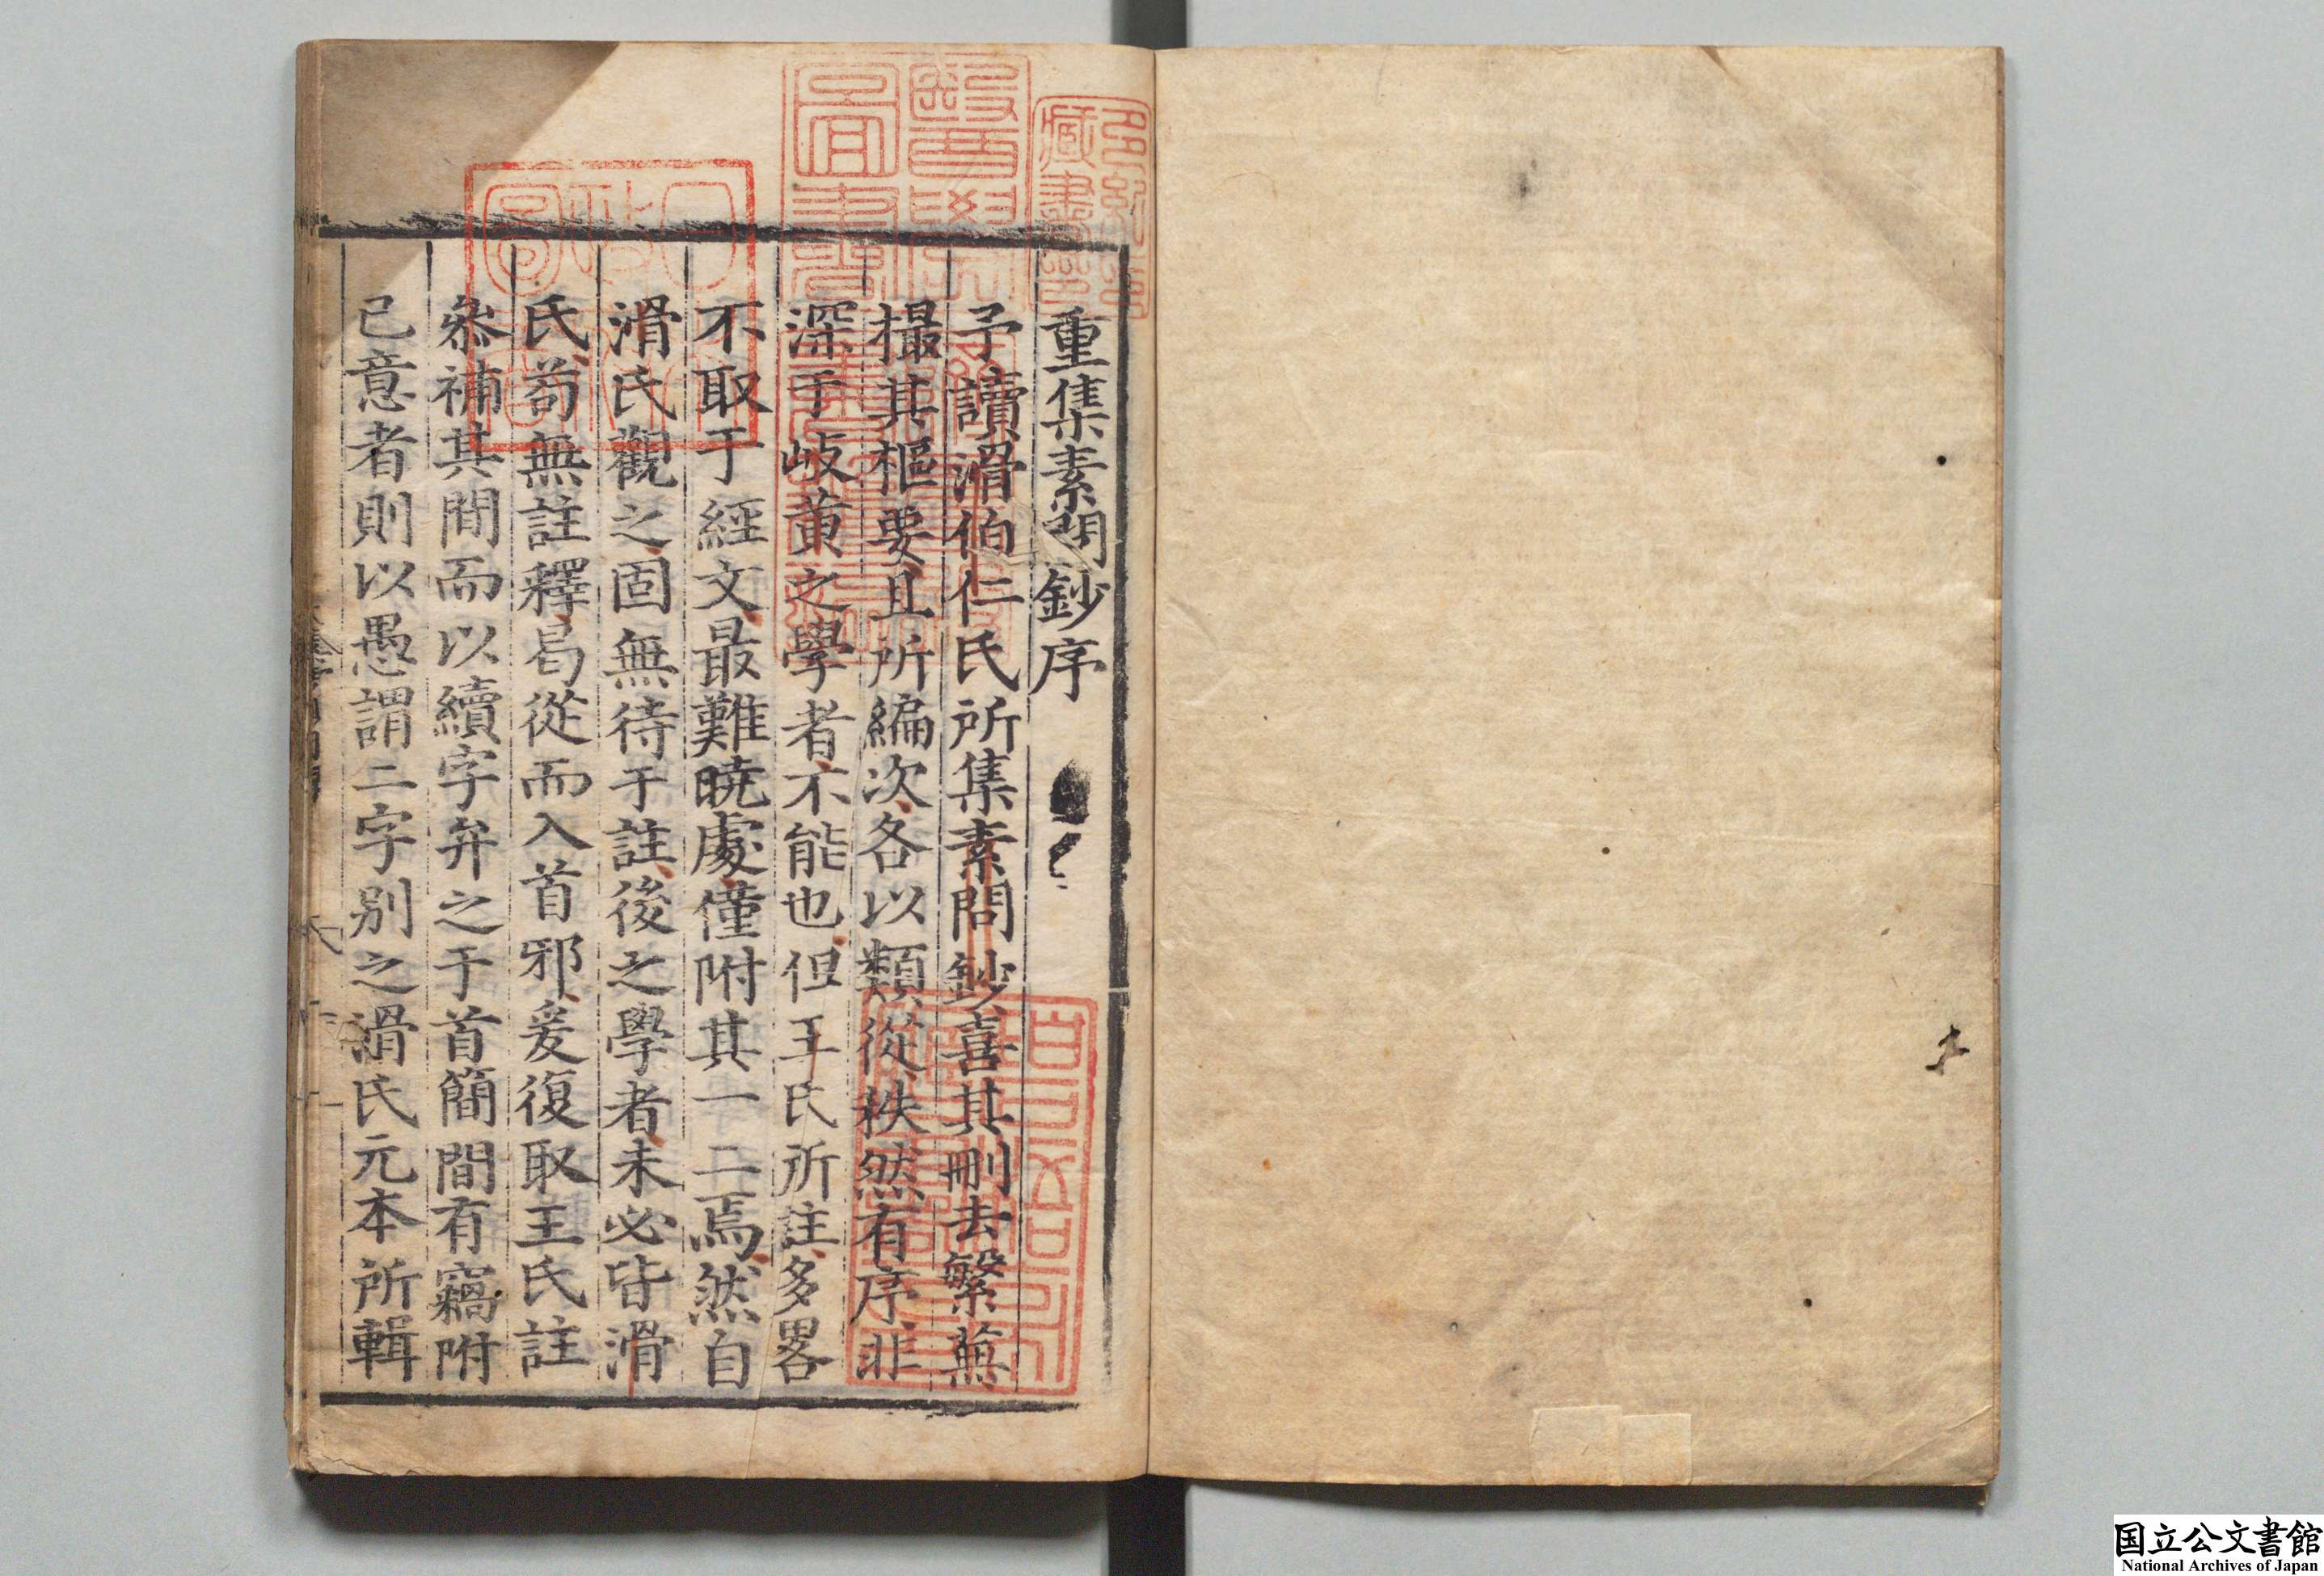 重集素問鈔序
予讀滑伯仁氏所集素問鈔喜其刪去繁蕪
撮其樞要且所編次各以類從秩然有序非
深于岐黃之學者不能也但王氏所註多畧
不取于經文最難曉處僅附其一二焉然自
滑氏觀之固無待于註後之學者未必皆滑
氏苟無註釋曷從而入首邪爰復取王氏註
叅補其間而以續字弁之于首簡間有竊附
已意者則以愚謂二字別之滑氏元本所輯
国立公文書館
National Archives of Japan